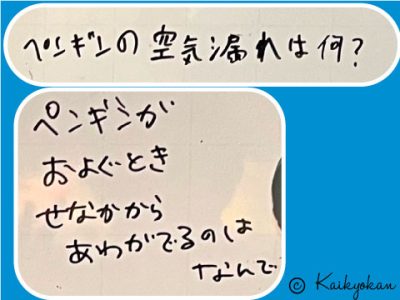 ペンギンの空気漏れは何?
ペンギンが
およぐとき
せなかから
あわがでるのは
なんで
© Kaikyokan